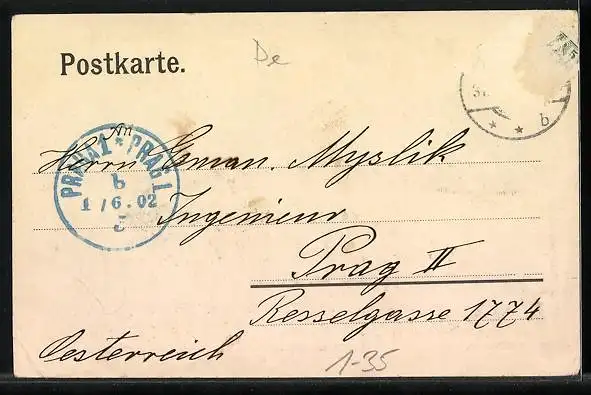 Postkarte.
De
An
Herrn Eman. Myslik
PRAHA 1 * PRAG 1.
b
1/6.02
Ingenieur
Prag II
Resselgasse 1774
Oesterreich
1-35
31
* *
b